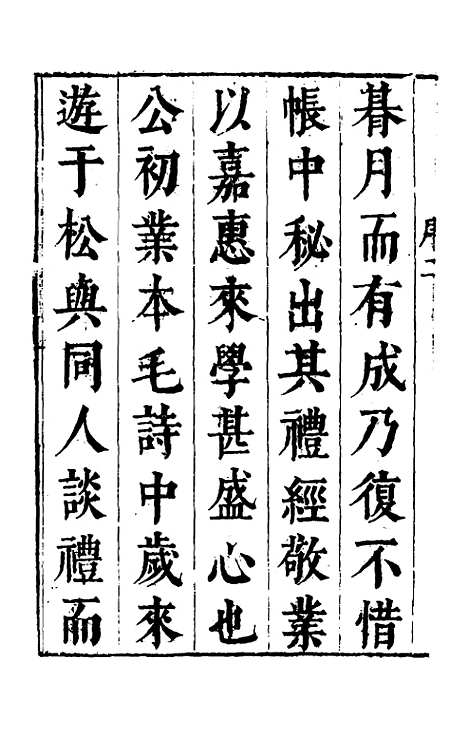 序二
朞月而有成乃復不惜
帳中秘出其禮經敬業
以嘉惠來學甚盛心也
公初業本毛詩中歲來
遊于松與同人談禮而